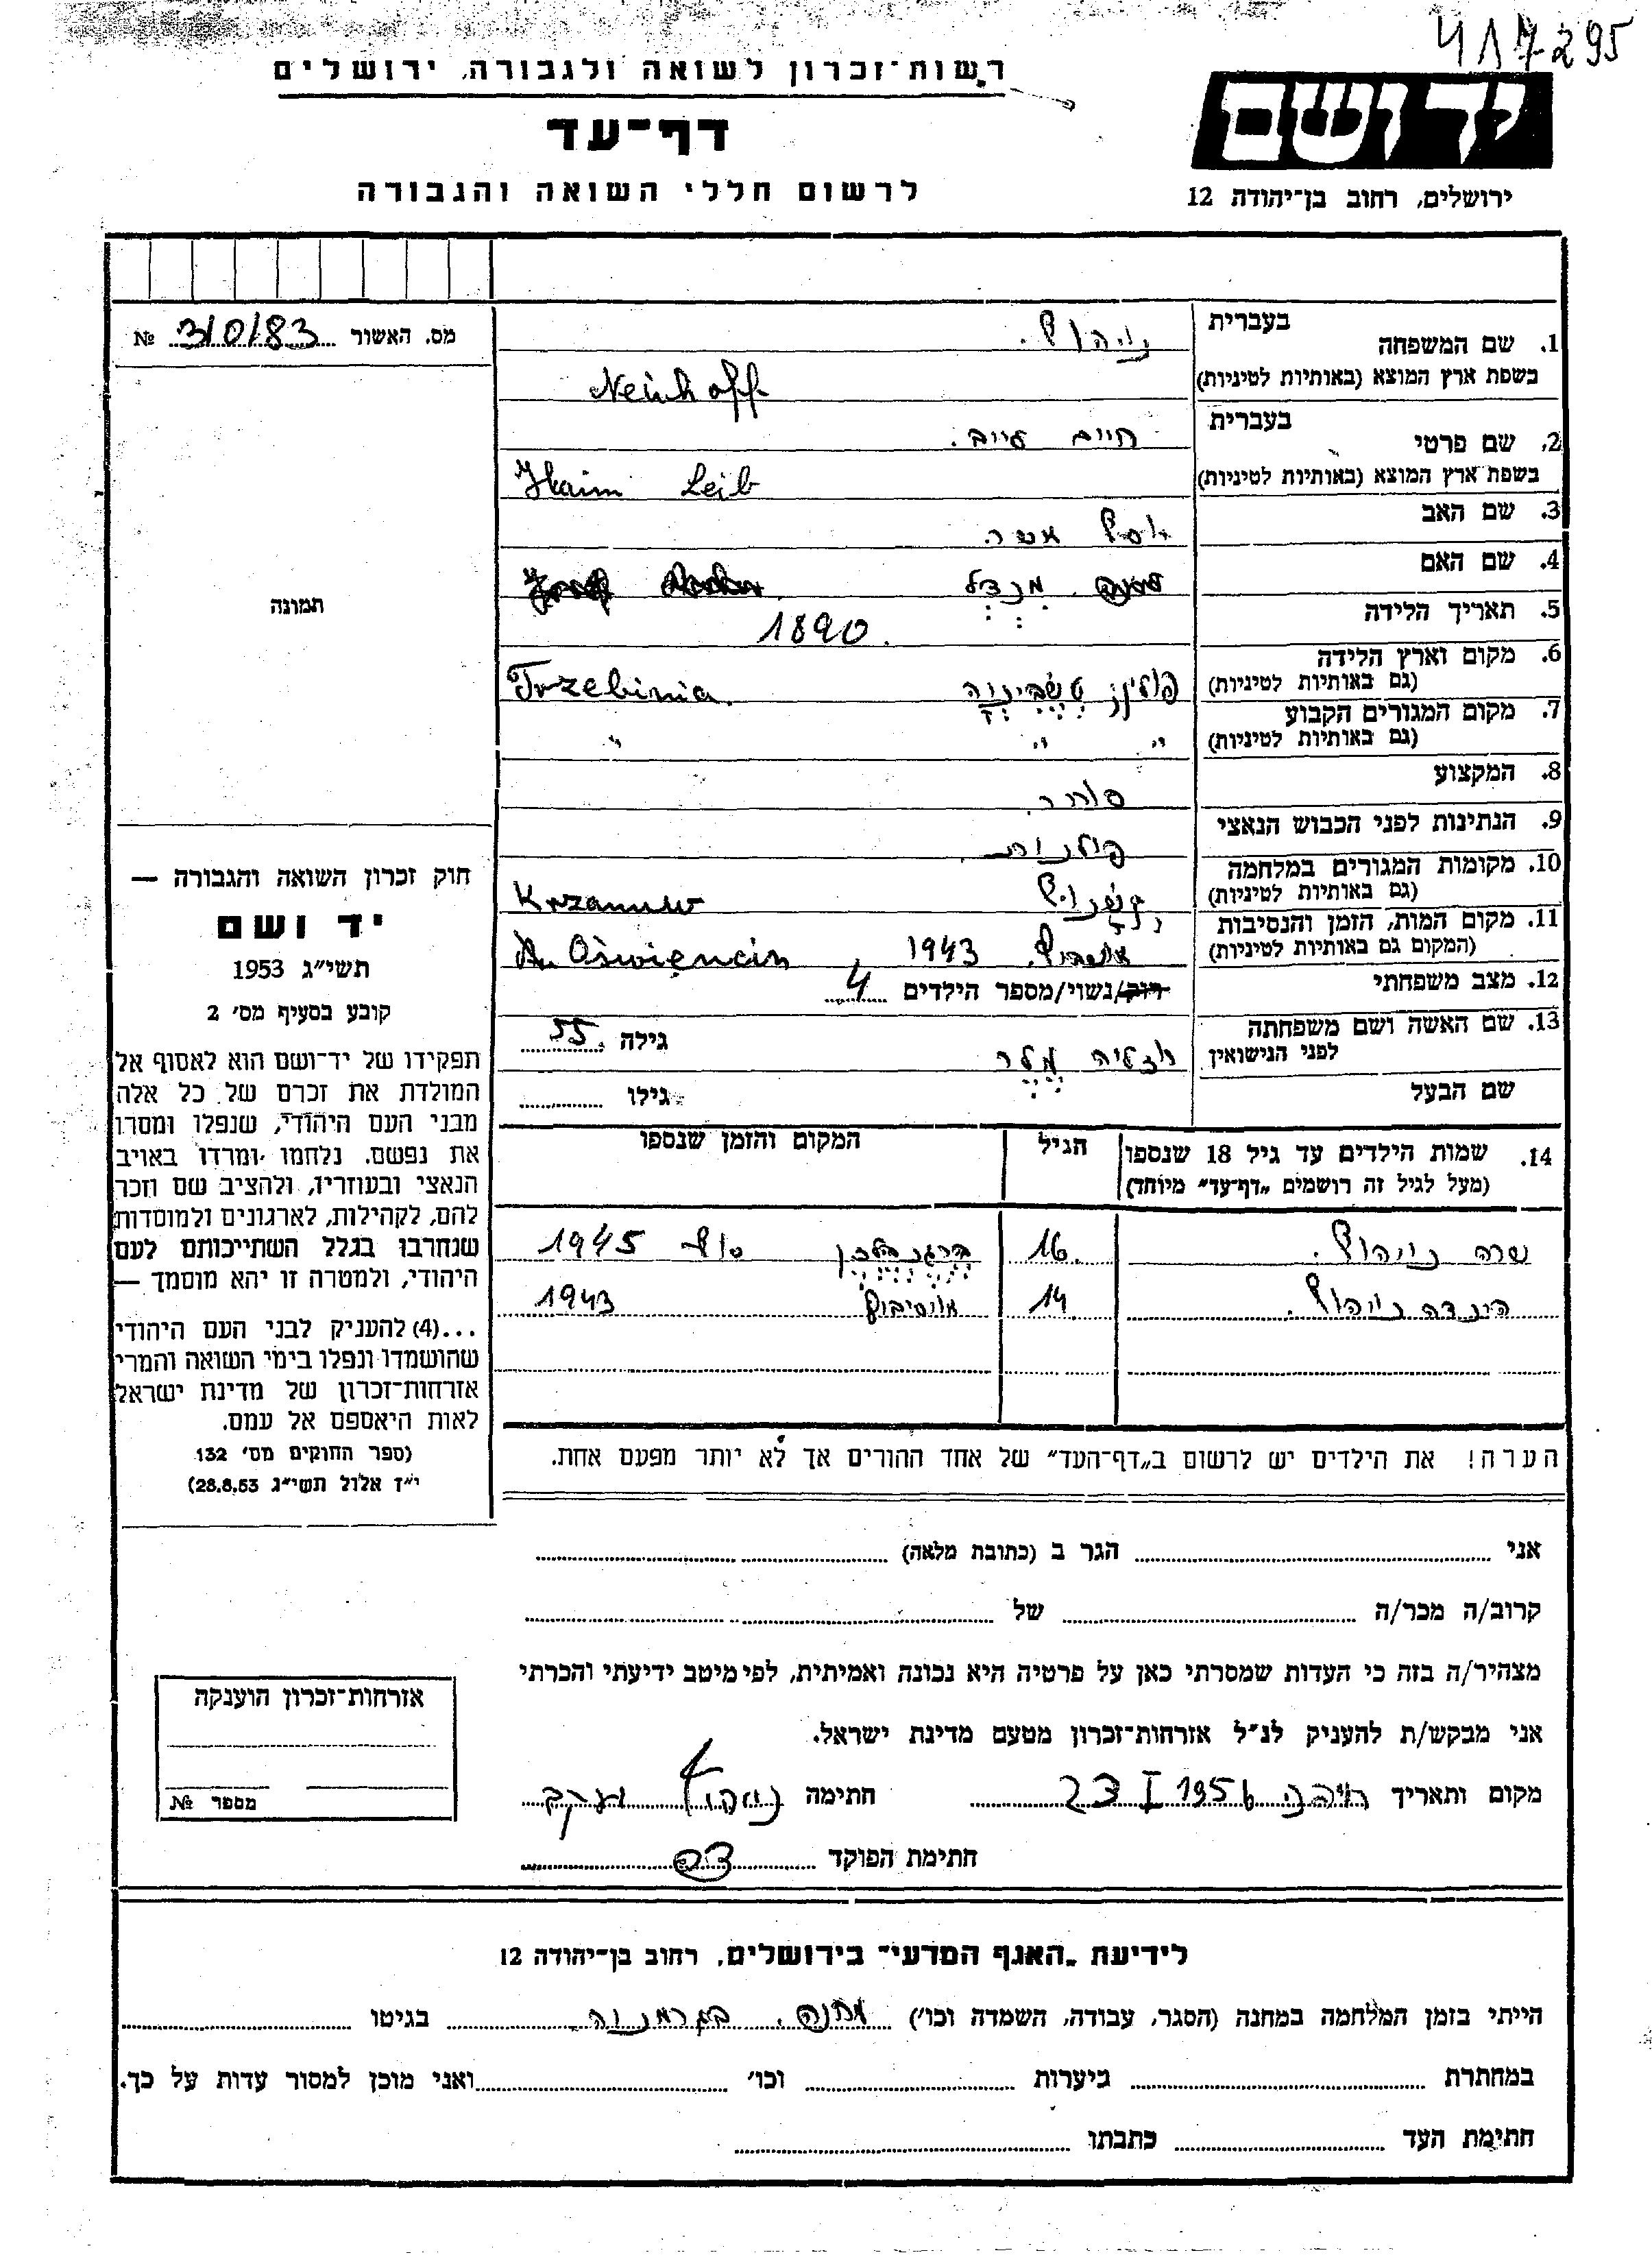 417295
רשות-זכרון לשואה ולגבורה, ירושלים
דף-עד
לרשום חללי השואה והגבורה
יד ושם
ירושלים, רחוב בן-יהודה 12
מס. האשור 310183 №
תמונה
1. שם המשפחה בעברית נויהוף.
בשפת ארץ המוצא (באותיות לטיניות) Neuhoff
2. שם פרטי בעברית חיים לייב.
בשפת ארץ המוצא (באותיות לטיניות) Haim Leib
3. שם האב יוסף אשר
4. שם האם מנדל
5. תאריך הלידה 1890.
6. מקום וארץ הלידה (גם באותיות לטיניות) פולין טשביניה Trzebinia.
7. מקום המגורים הקבוע (גם באותיות לטיניות) " " "
8. המקצוע סוחר.
9. הנתינות לפני הכבוש הנאצי פולנית.
10. מקומות המגורים במלחמה (גם באותיות לטיניות) קשנויף Krzanuw
11. מקום המות, הזמן והנסיבות (המקום גם באותיות לטיניות) 1943 Oświęncin
12. מצב משפחתי רווק/נשוי/מספר הילדים 4
13. שם האשה ושם משפחתה לפני הנישואין מלר גילה 55
שם הבעל גילו
14. שמות הילדים עד גיל 18 שנספו (מעל לגיל זה רושמים „דף-עד" מיוחד) הגיל המקום והזמן שנספו
שרה נויהוף. 16. ברגן בלזן סוף 1945
הינדה נויהוף. 14 אושויץ 1943
הערה! את הילדים יש לרשום ב„דף-העד" של אחד ההורים אך לא יותר מפעם אחת.
חוק זכרון השואה והגבורה —
יד ושם
תשי"ג 1953
קובע בסעיף מס' 2
תפקידו של יד-ושם הוא לאסוף אל
המולדת את זכרם של כל אלה
מבני העם היהודי, שנפלו ומסרו
את נפשם, נלחמו ומרדו באויב
הנאצי ובעוזריו, ולהציב שם וזכר
להם, לקהילות, לארגונים ולמוסדות
שנחרבו בגלל השתייכותם לעם
היהודי, ולמטרה זו יהא מוסמך —
...(4) להעניק לבני העם היהודי
שהושמדו ונפלו בימי השואה והמרי
אזרחות-זכרון של מדינת ישראל
לאות היאספם אל עמם.
(ספר החוקים מס' 132
י"ז אלול תשי"ג 28.8.53)
אני הגר ב (כתובת מלאה)
קרוב/ה מכר/ה של
מצהיר/ה בזה כי העדות שמסרתי כאן על פרטיה היא נכונה ואמיתית, לפי מיטב ידיעתי והכרתי
אני מבקש/ת להעניק לנ"ל אזרחות-זכרון מטעם מדינת ישראל.
מקום ותאריך 23 I 1956 חתימה נויהוף יעקב
חתימת הפוקד
אזרחות-זכרון הוענקה
מספר №
לידיעת „האגף המדעי" בירושלים, רחוב בן-יהודה 12
הייתי בזמן המלחמה במחנה (הסגר, עבודה, השמדה וכו') מחנה. בגרמניה. בגיטו
במחתרת ביערות וכו' ואני מוכן למסור עדות על כך.
חתימת העד כתבתו